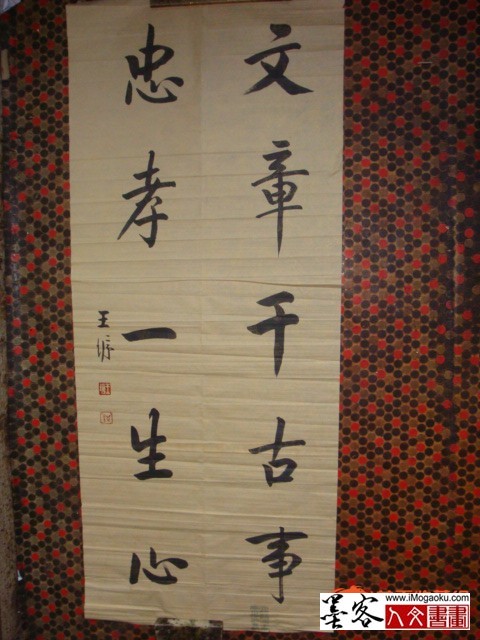 文章千古事
忠孝一生心
王
墨客
www.iMogaoku.com
人文書畫